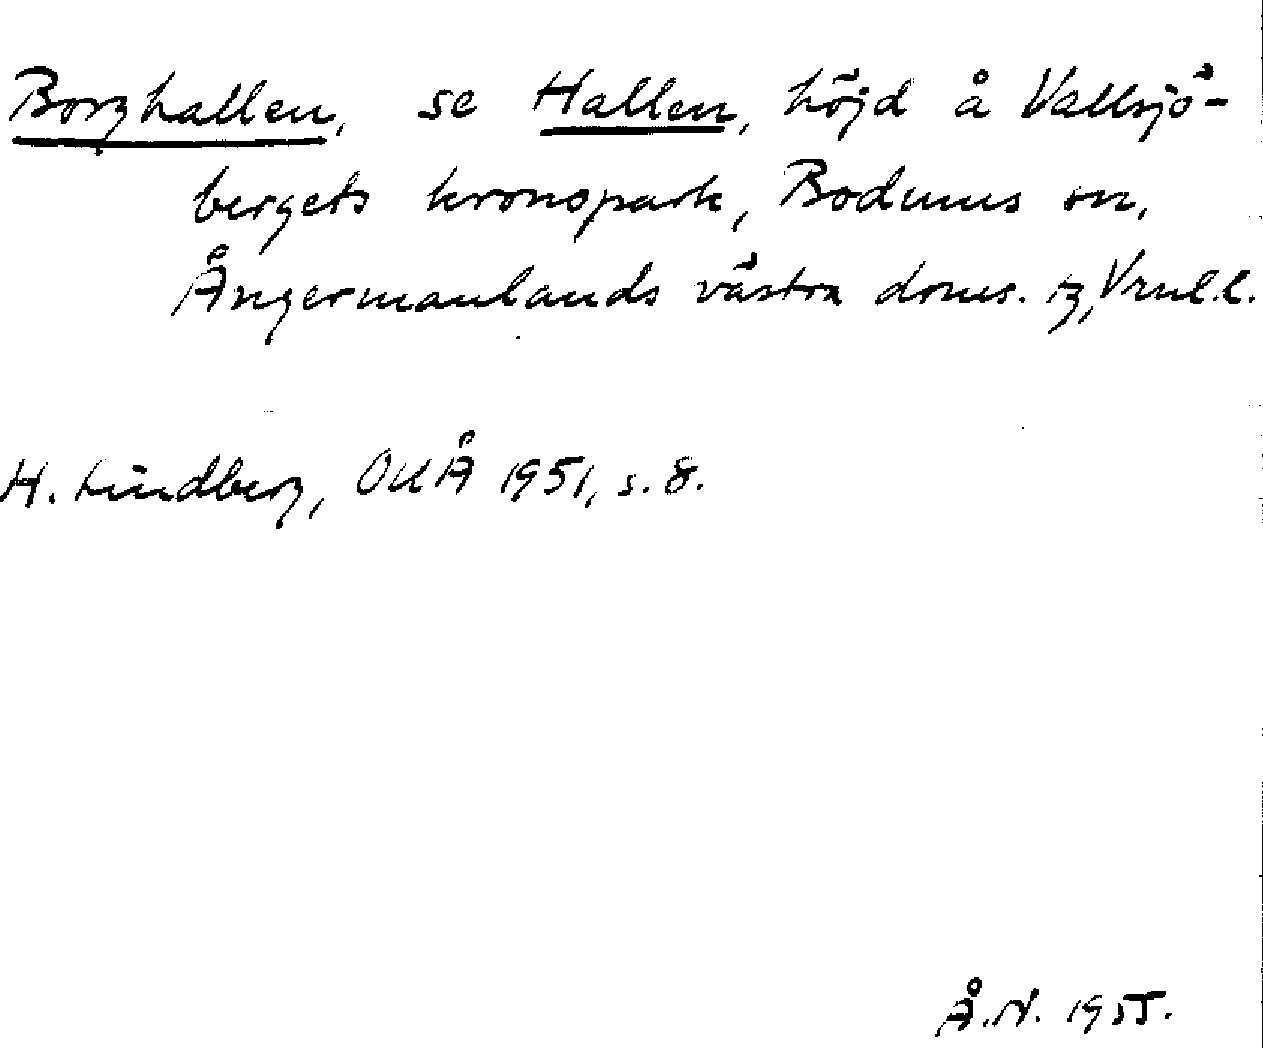 Borghallen, se Hallen, höjd å Vallsjö-
bergets kronopark, Bodums sn,
Ångermanlands västra doms. tg, Vrnl. l.
H. Lindberg, OUÅ 1951, s. 8.
Å.N. 1955.